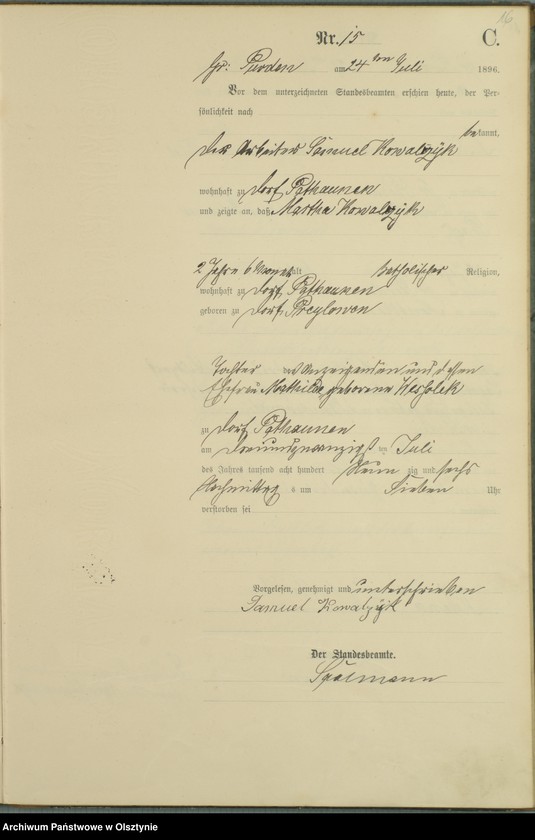 16
Nr. 15 C.
Gr. Purden am 24ten Juli 1896.
Vor dem unterzeichneten Standesbeamten erschien heute, der Per-
sönlichkeit nach
bekannt,
der Arbeiter Samuel Kowalzyk
wohnhaft zu Dorf Pathaunen
und zeigte an, daß Martha Kowalzyk
2 Jahre 6 Monate alt katholischer Religion,
wohnhaft zu Dorf Pathaunen
geboren zu Dorf Preylowen
Tochter des Anzeigenden und dessen
Ehefrau Mathilde geborene
zu Dorf Pathaunen
am Dreiundzwanzigst ten Juli
des Jahres tausend acht hundert Neun zig und sechs
Nachmittag s um Sieben Uhr
verstorben sei
Vorgelesen, genehmigt und unterschrieben
Samuel Kowalzyk
Der Standesbeamte.
Archiwum Państwowe w Olsztynie